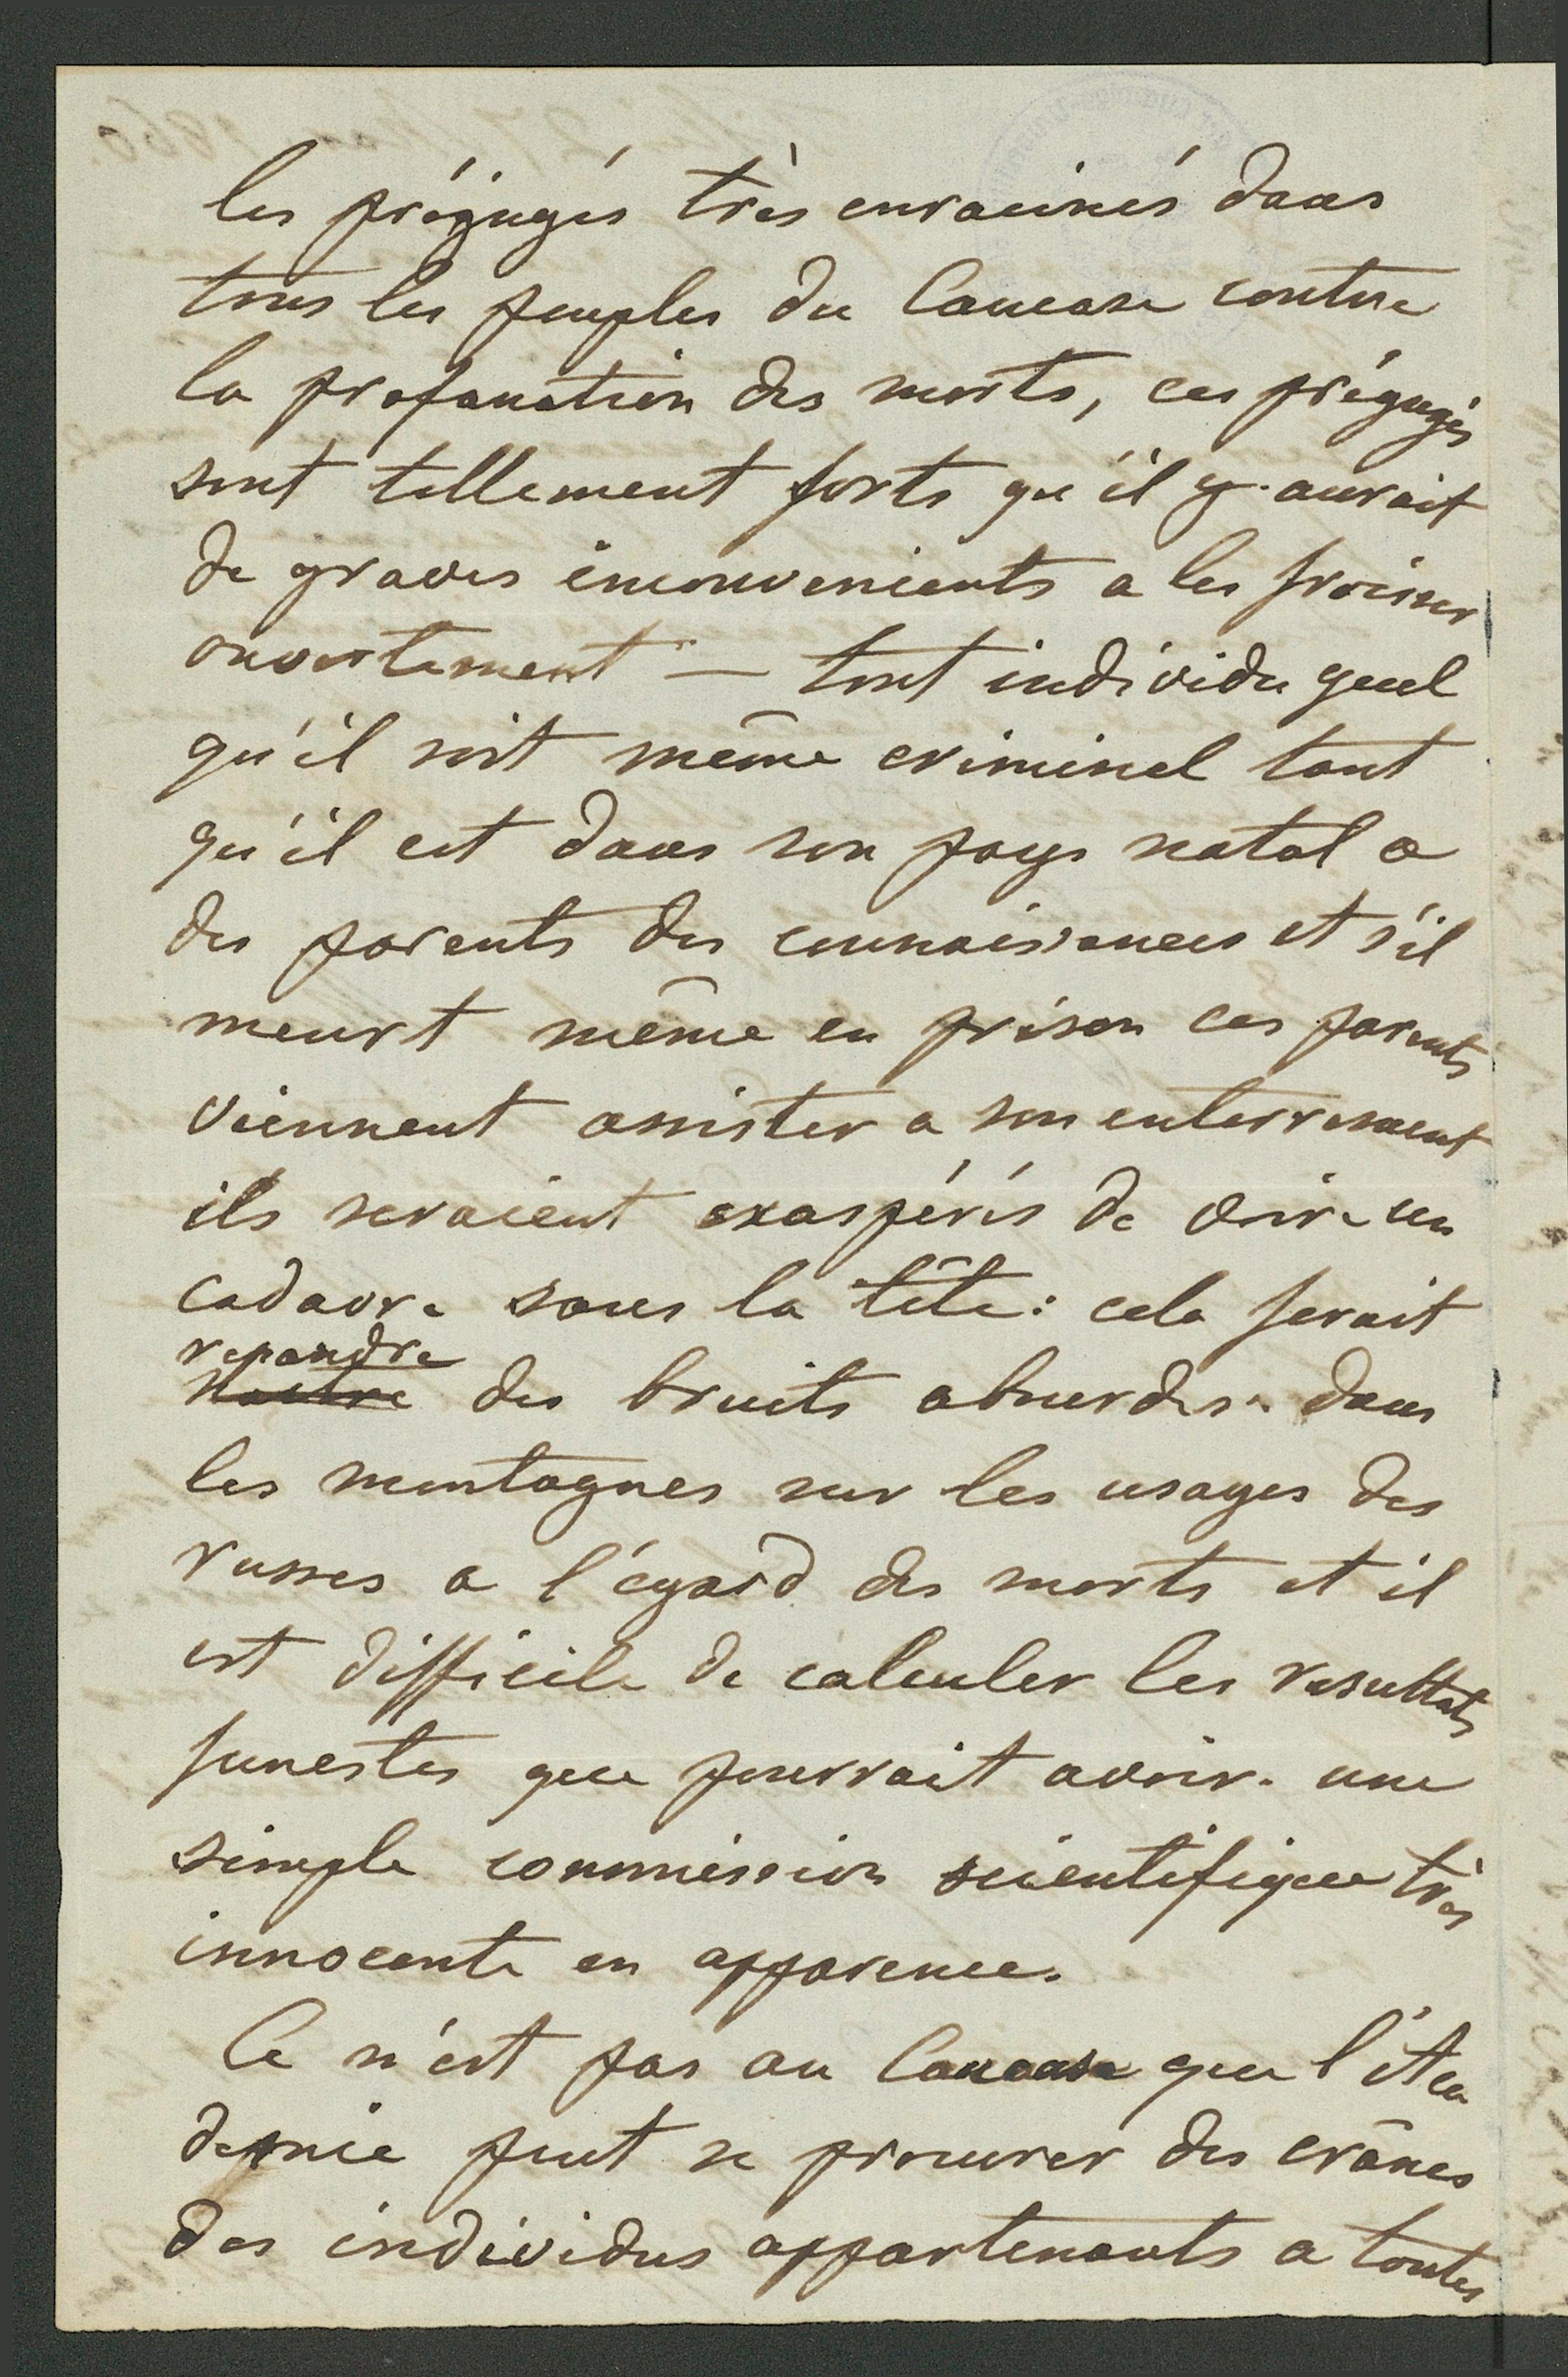 les préjugés très enracinés dans
tous les peuples du Caucase contre
la profanation des morts, ces préjugés
sont tellement forts qu'il y aurait
de graves inconvenients a les froisser
ouvertement — tout individu quel
qu'il soit même criminel tant
qu'il est dans son pays natal a
des parents des connaissances et s'il
meurt même en prison ces parents
viennent assister a son enterrement
ils seraient exaspérés de voir un
cadavre sans la tête: cela ferait
repandre
naitre des bruits absurdes dans
les montagnes sur les usages des
russes a l'égard des morts et il
est difficile de calculer les resultats
funestes que pourrait avoir une
simple commission scientifique très
innocente en apparence.
Ce n'est pas au Caucase que l'Aca
demie peut se procurer des crânes
des individus appartenants a toutes